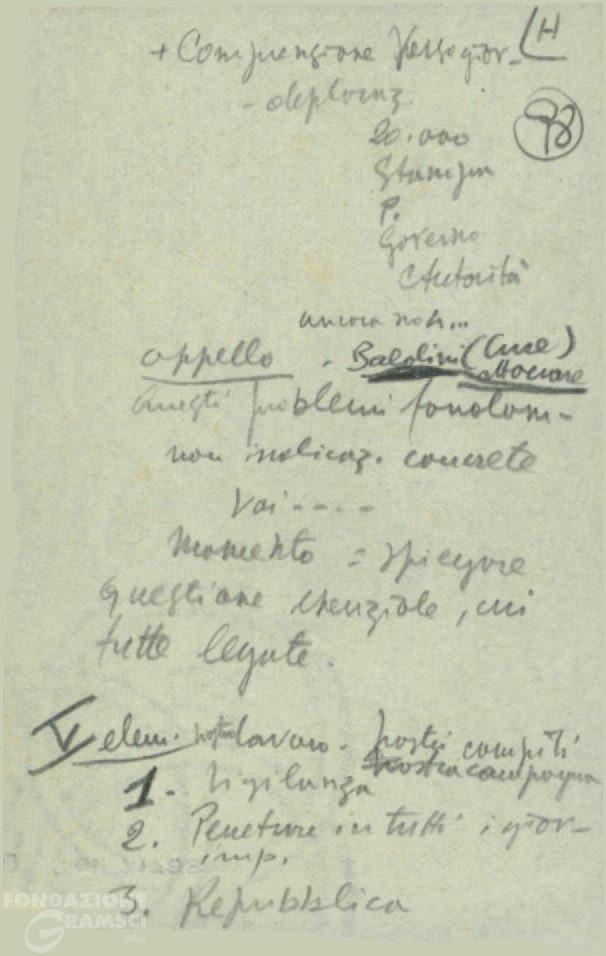 H
+ Comprensione
- deploraz.
98
20.000
Stampa
P.
Governo
Autorità
ancora non...
appello - Baldini (Cure)
attaccare
Questi problemi fondam-
non indicaz. concrete
Voi - - - -
Momento = spiegare
Questione essenziale, cui
tutte legate.
V elem. nostro lavoro. nostri compiti
nostra campagna
1. Vigilanza
2. Penetrare in tutti i gior-
imp.
3. Repubblica
FONDAZIONE
GRAMSCI
onlus